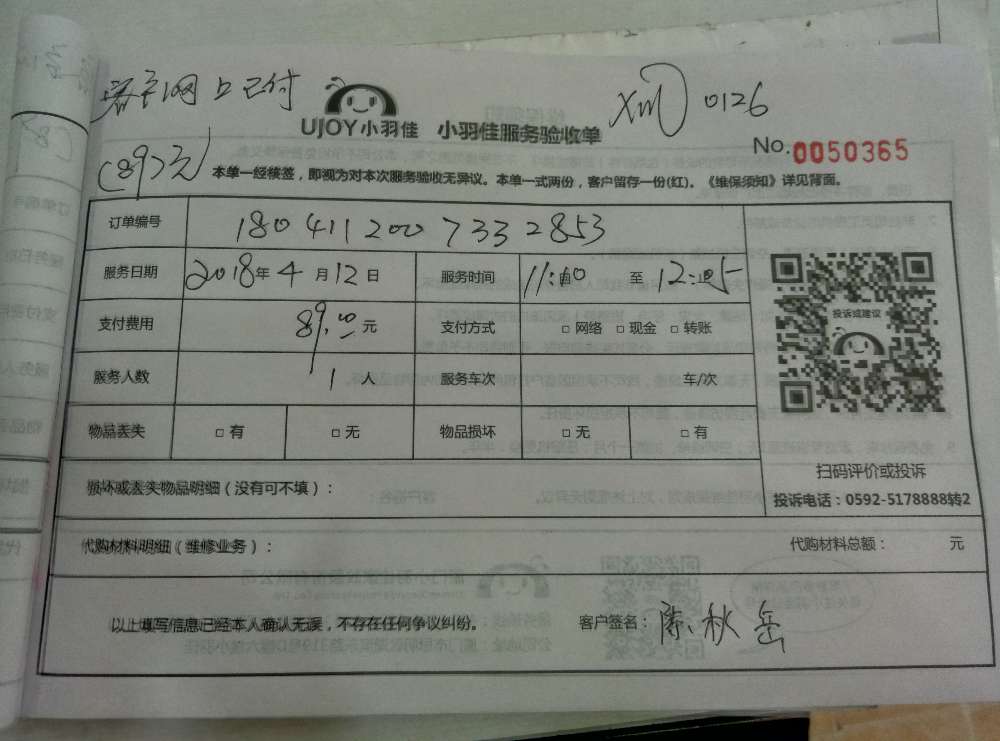 客户网上已付
(89元)
XM 0126
UJOY小羽佳 小羽佳服务验收单
No.0050365
本单一经核签，即视为对本次服务验收无异议。本单一式两份，客户留存一份(红)。《维保须知》详见背面。
订单编号 1804112007332853
服务日期 2018年4月12日 服务时间 至
支付费用 89.00元 支付方式 □ 网络 □ 现金 □ 转账
服务人数 1人 服务车次 车/次
物品丢失 □ 有 □ 无 物品损坏 □ 无 □ 有
投诉或建议
扫码评价或投诉
投诉电话：0592-5178888转2
损坏或丢失物品明细（没有可不填）：
代购材料明细（维修业务）： 代购材料总额： 元
以上填写信息已经本人确认无误，不存在任何争议纠纷。 客户签名：陈秋岳